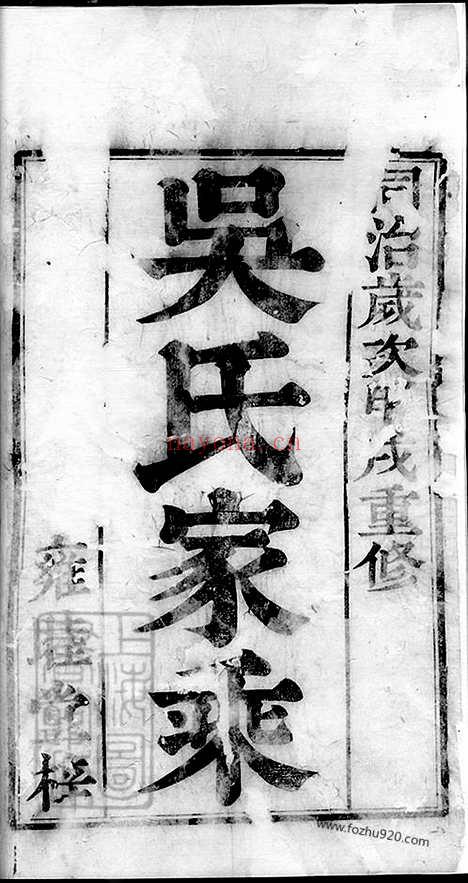 同治歲次甲戌重修
吳氏家乘
雍睦堂梓
nayona.cn
www.fozhu920.com